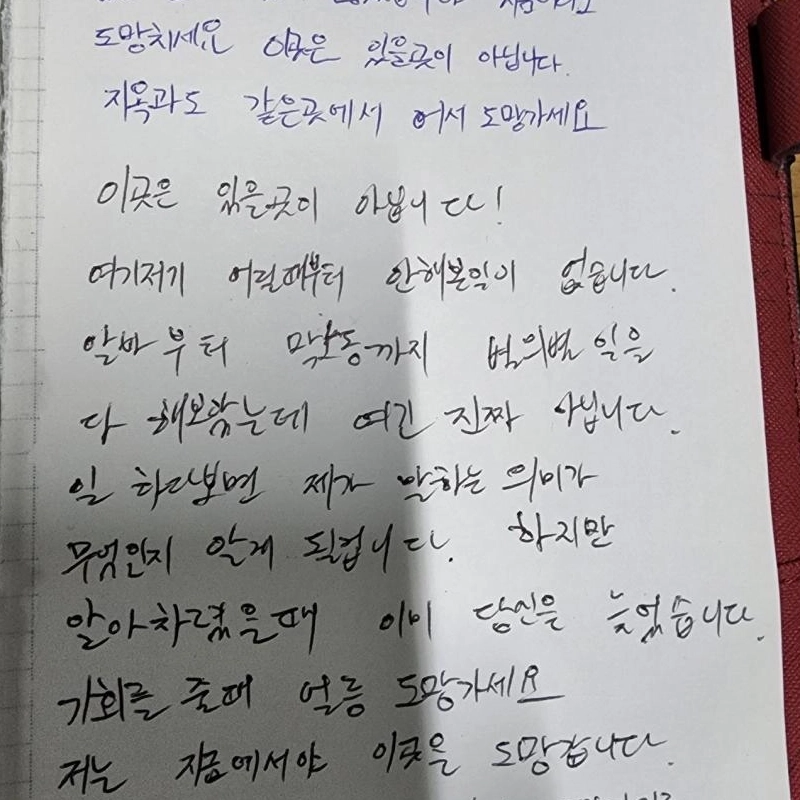 도망치세요 이곳은 있을곳이 아닙니다.
지옥과도 같은곳에서 어서 도망가세요
이곳은 있을곳이 아닙니다!
여기저기 어릴때부터 안해본일이 없습니다.
알바부터 막노동까지 별의별 일을
다 해보았는데 여긴 진짜 아닙니다.
일 하다보면 제가 말하는 의미가
무엇인지 알게 될겁니다. 하지만
알아차렸을때 이미 당신은 늦었습니다.
기회를 줄때 얼릉 도망가세요
저는 지금에서야 이곳을 도망갑니다.